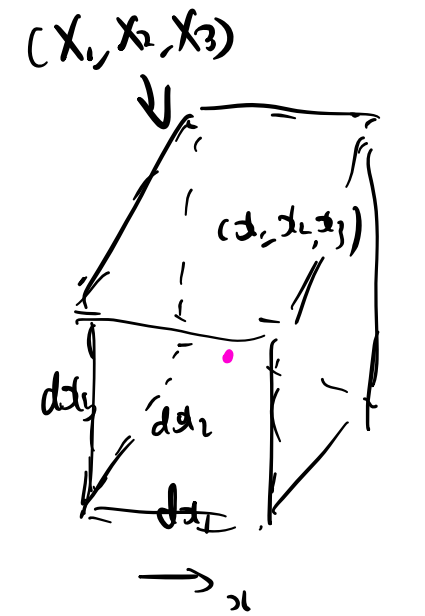 (X₁, X₂, X₃)
(x₁, x₂, x₃)
dx₃
dx₂
dx₁
x